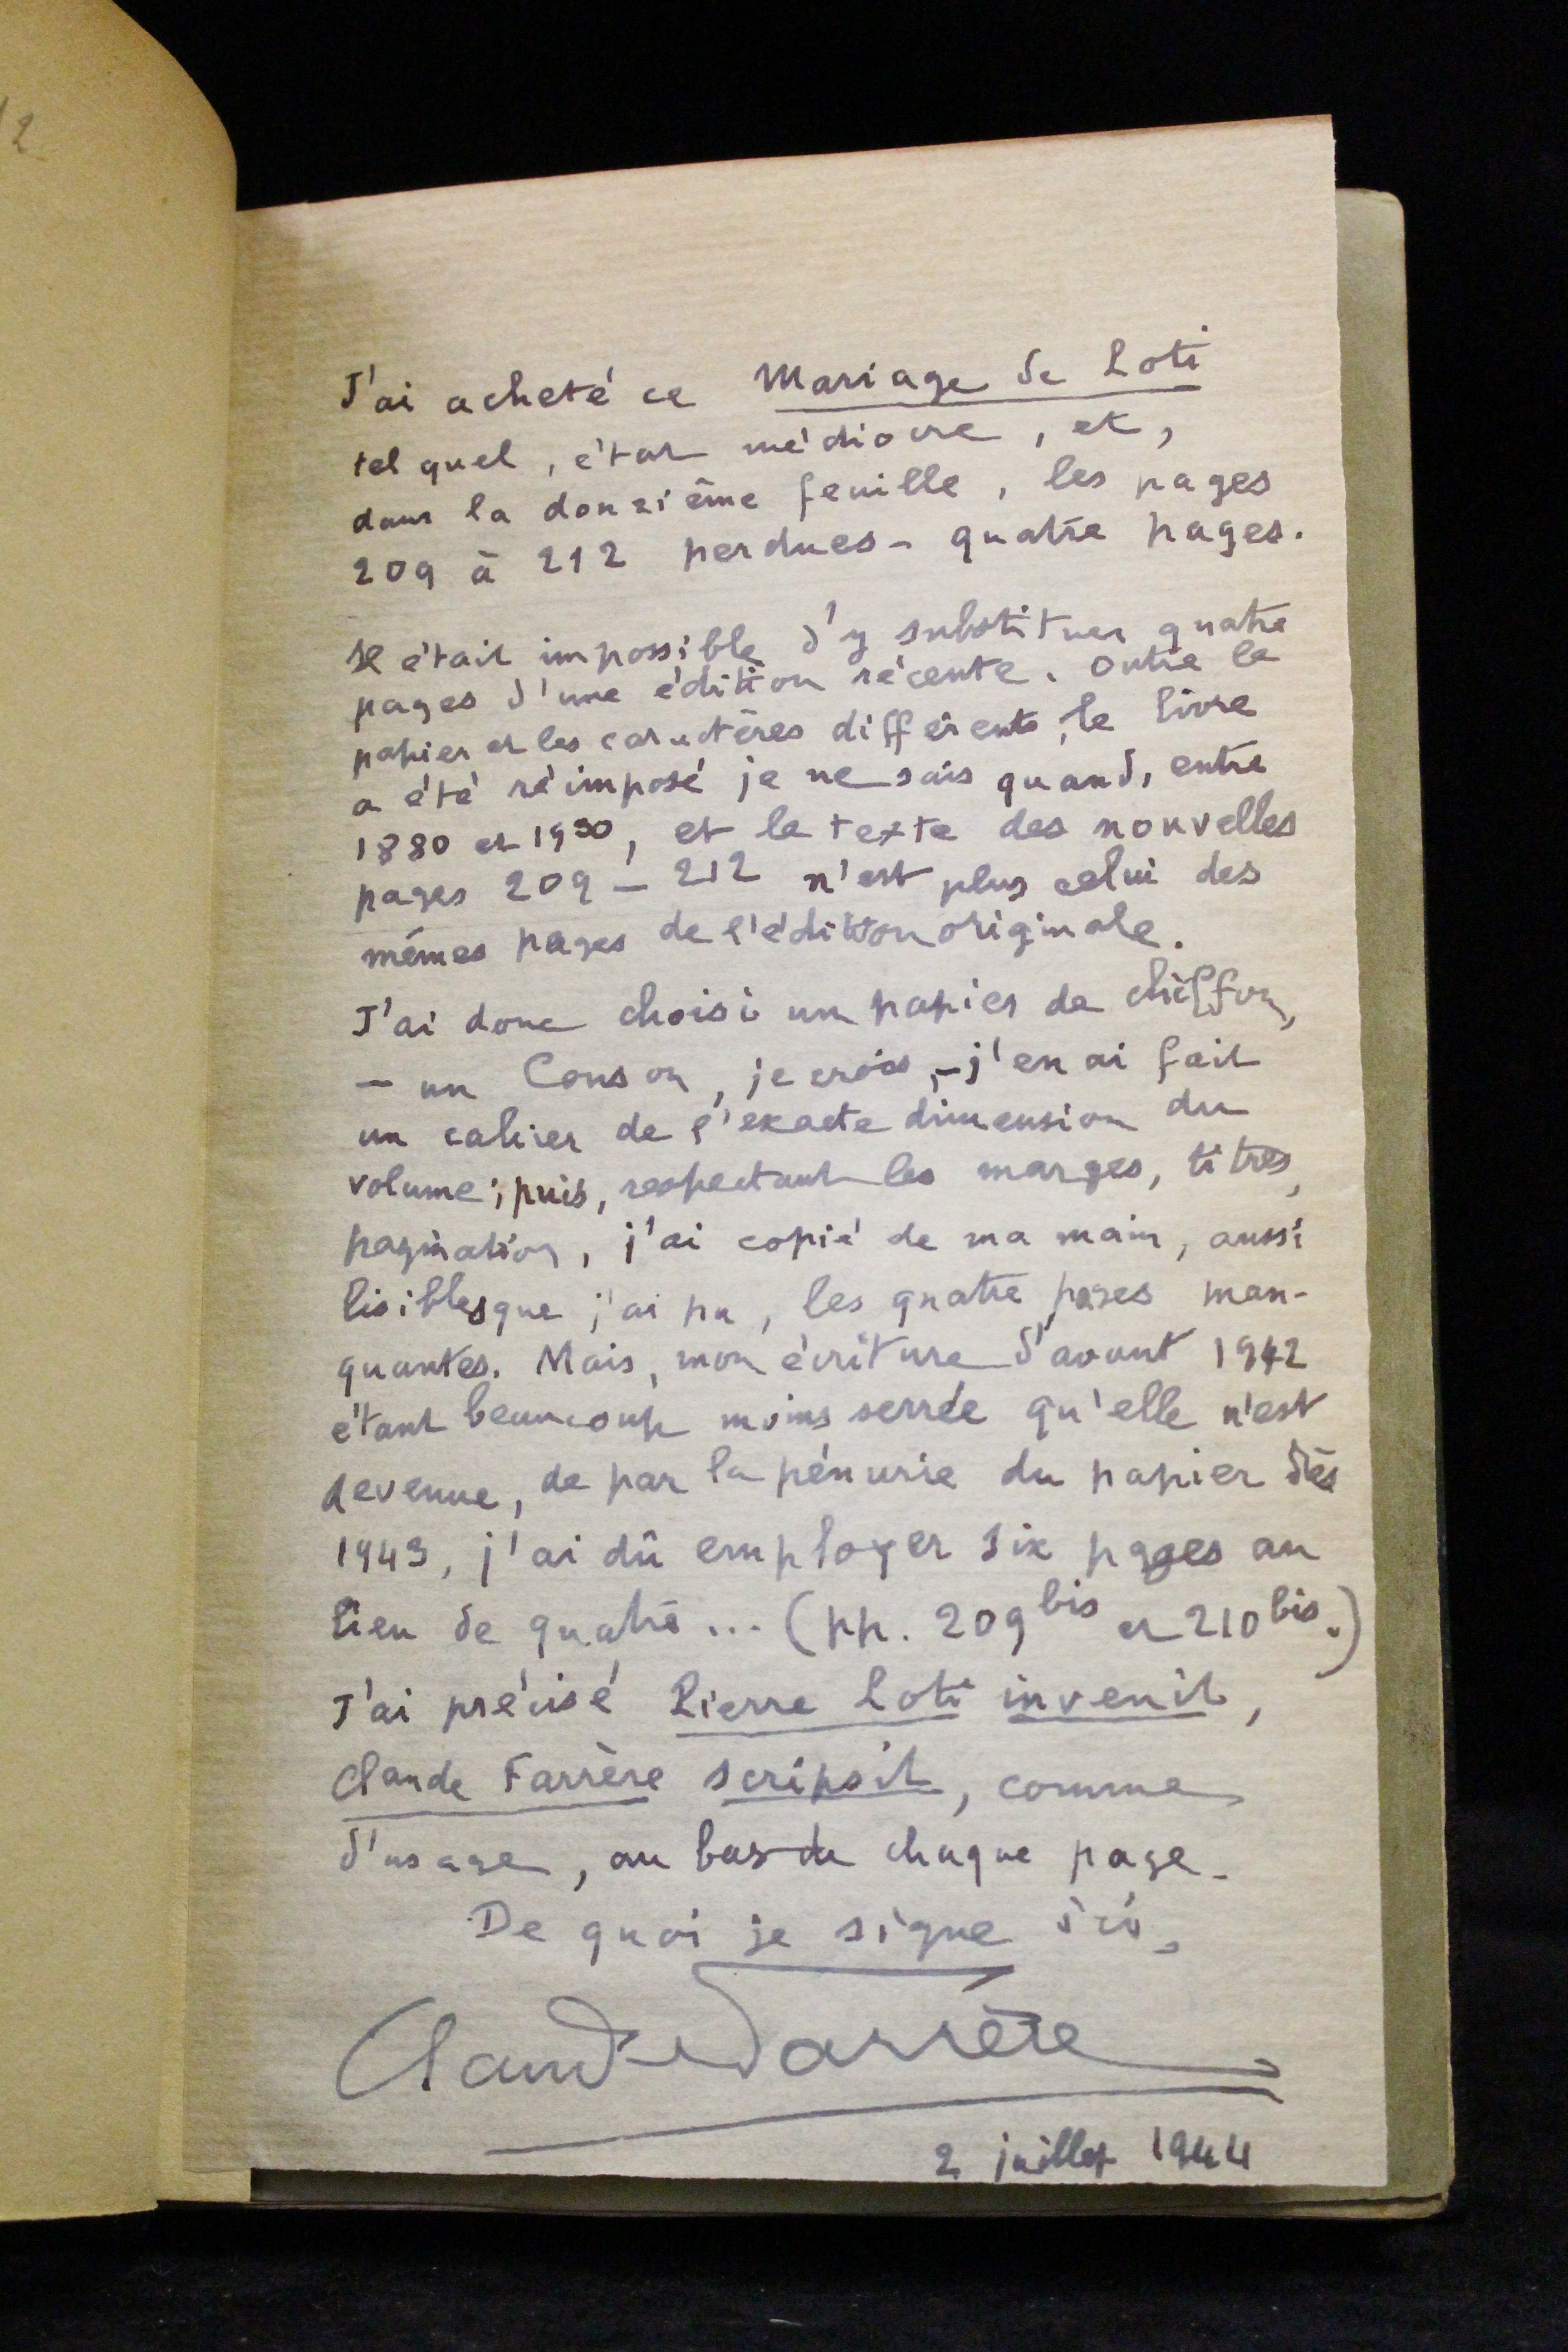 12
J'ai acheté ce Mariage de Loti
tel quel, état médiocre, et,
dans la douzième feuille, les pages
209 à 212 perdues - quatre pages.
Il était impossible d'y substituer quatre
pages d'une édition récente. Outre le
papier et les caractères différents, le livre
a été réimposé je ne sais quand, entre
1880 et 1930, et le texte des nouvelles
pages 209 - 212 n'est plus celui des
mêmes pages de l'édition originale.
J'ai donc choisi un papier de chiffon,
- un Canson, je crois, - j'en ai fait
un cahier de l'exacte dimension du
volume; puis, respectant les marges, titres,
pagination, j'ai copié de ma main, aussi
lisibles que j'ai pu, les quatre pages man-
quantes. Mais, mon écriture d'avant 1942
étant beaucoup moins serrée qu'elle n'est
devenue, de par la pénurie du papier dès
1943, j'ai dû employer six pages au
lieu de quatre ... (pp. 209 bis et 210 bis.)
J'ai précisé Pierre Loti invenit,
Claude Farrère scripsit, comme
d'usage, au bas de chaque page.
De quoi je signe ici,
Claude Farrère
2 juillet 1944